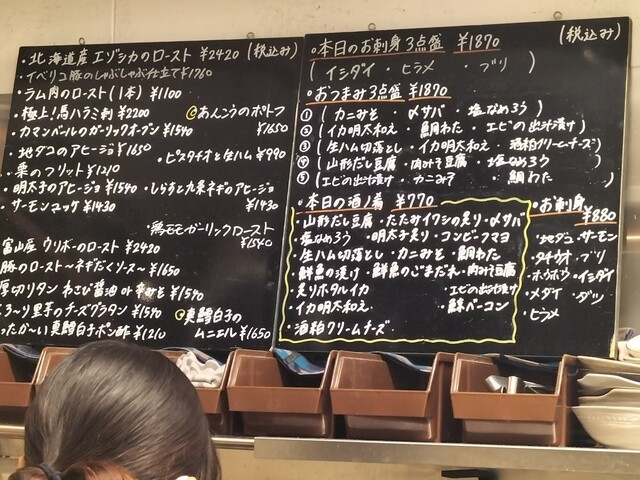 ・北海道産 エゾシカのロースト ¥2420 (税込み)
・イベリコ豚のしゃぶしゃぶ仕立て ¥1760
・ラム肉のロースト(1本) ¥1100
・極上!馬ハラミ刺 ¥2200
・カマンベールのガーリックオーブン ¥1540
・地ダコのアヒージョ ¥1650
のフリット ¥1210
・明太子のアヒージョ ¥1540
・サーモンユッケ ¥1430
あんこうのポトフ ¥1650
・ピスタチオと生ハム ¥990
・しらすと九条ネギのアヒージョ ¥1430
・鶏モモガーリックロースト ¥1540
富山産 ウリボーのロースト ¥2420
豚のロースト〜ネギだくソース〜 ¥1650
厚切りタン わさび醤油 or 辛みそ ¥1540
ろ〜り里芋のチーズグラタン ¥1540
ったか〜い真鱈白子ポン酢 ¥1210
真鱈白子の
ムニエル ¥1650
・本日のお刺身3点盛 ¥1870 (税込み)
(イシダイ ・ ヒラメ ・ ブリ)
・おつまみ3点盛 ¥1870
① (カニみそ ・ 〆サバ ・ 塩なめろう)
② (イカ明太和え ・ 鯛わた ・ エビの出汁漬け)
③ (生ハム切落とし ・ イカ明太和え ・ 酒粕クリームチーズ)
④ (山形だし豆腐 ・ 肉みそ豆腐 ・ 塩なめろう)
⑤ (エビの出汁漬け ・ カニみそ ・ 鯛わた)
・本日の酒ノ肴 ¥770
・山形だし豆腐 ・たたみイワシの炙り ・〆サバ
・塩なめろう ・明太子炙り ・コンビーフマヨ
・生ハム切落とし ・カニみそ ・鯛わた
・鮮魚の漬け ・鮮魚のごまだれ ・肉みそ豆腐
・炙りホタルイカ ・エビの出汁漬け
・イカ明太和え ・鯨ベーコン
・酒粕クリームチーズ
・お刺身 ¥880
・地ダコ ・サーモン
・タチウオ ・ブリ
・ホウボウ ・イシダイ
・メダイ ・ダツ
・ヒラメ